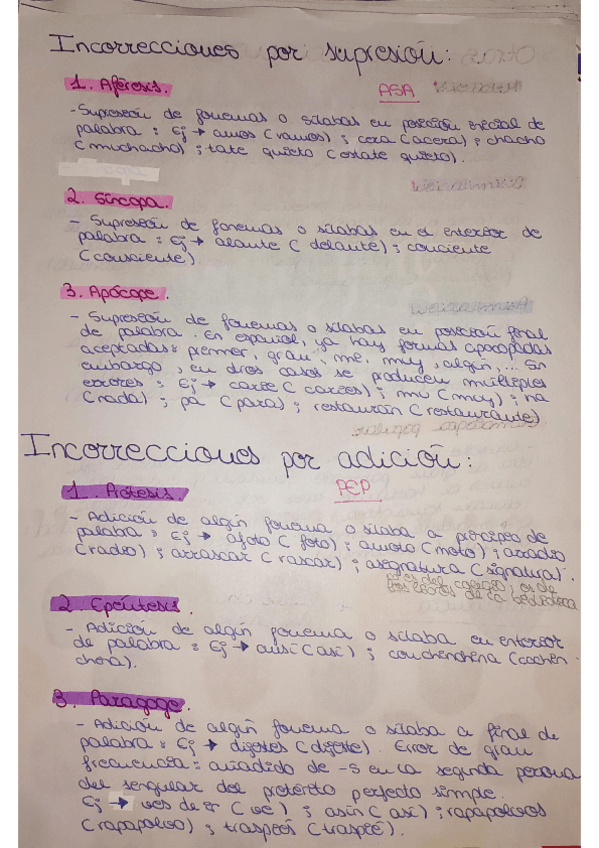 Incorrecciones por supresión:
1. Aféresis.
ASA
- Supresión de fonemas o sílabas en posición inicial de
palabra : Ej → amos (ramos) ; cera (acera) ; chacho
(muchacho) ; tate quieto (estate quieto).
2. Síncopa.
- Supresión de fonemas o sílabas en el interior de
palabra : Ej → alante (delante) ; conciente
(consciente)
3. Apócope.
- Supresión de fonemas o sílabas en posición final
de palabra. En español, ya hay formas apocopadas
aceptadas: primer, gran, mé, muy, algún,... Sin
embargo, en otros casos se producen múltiples
errores : Ej → carie (caries) ; mu (muy) ; na
(nada) ; pa (para) ; restaurán (restaurante)
Incorrecciones por adición:
1. Prótesis
PEP
- Adición de algún fonema o sílaba a principio de
palabra : Ej → afoto (foto) ; amoto (moto) ; arradio
(radio) ; arrascar (rascar) ; asegnatura (signatura).
de la biblioteca
2. Epéntesis.
- Adición de algún fonema o sílaba en interior
de palabra : Ej → ansí (así) ; conchenchena (cochin
chera).
3. Paragoge.
- Adición de algún fonema o sílaba a final de
palabra : Ej → digestes (digeste). Error de gran
frecuencia : añadido de -s en la segunda persona
del singular del pretérito perfecto simple.
Ej → ves de er (ve) ; asín (así) ; rapapolvos
(rapapolvo) ; traspiés (traspié).